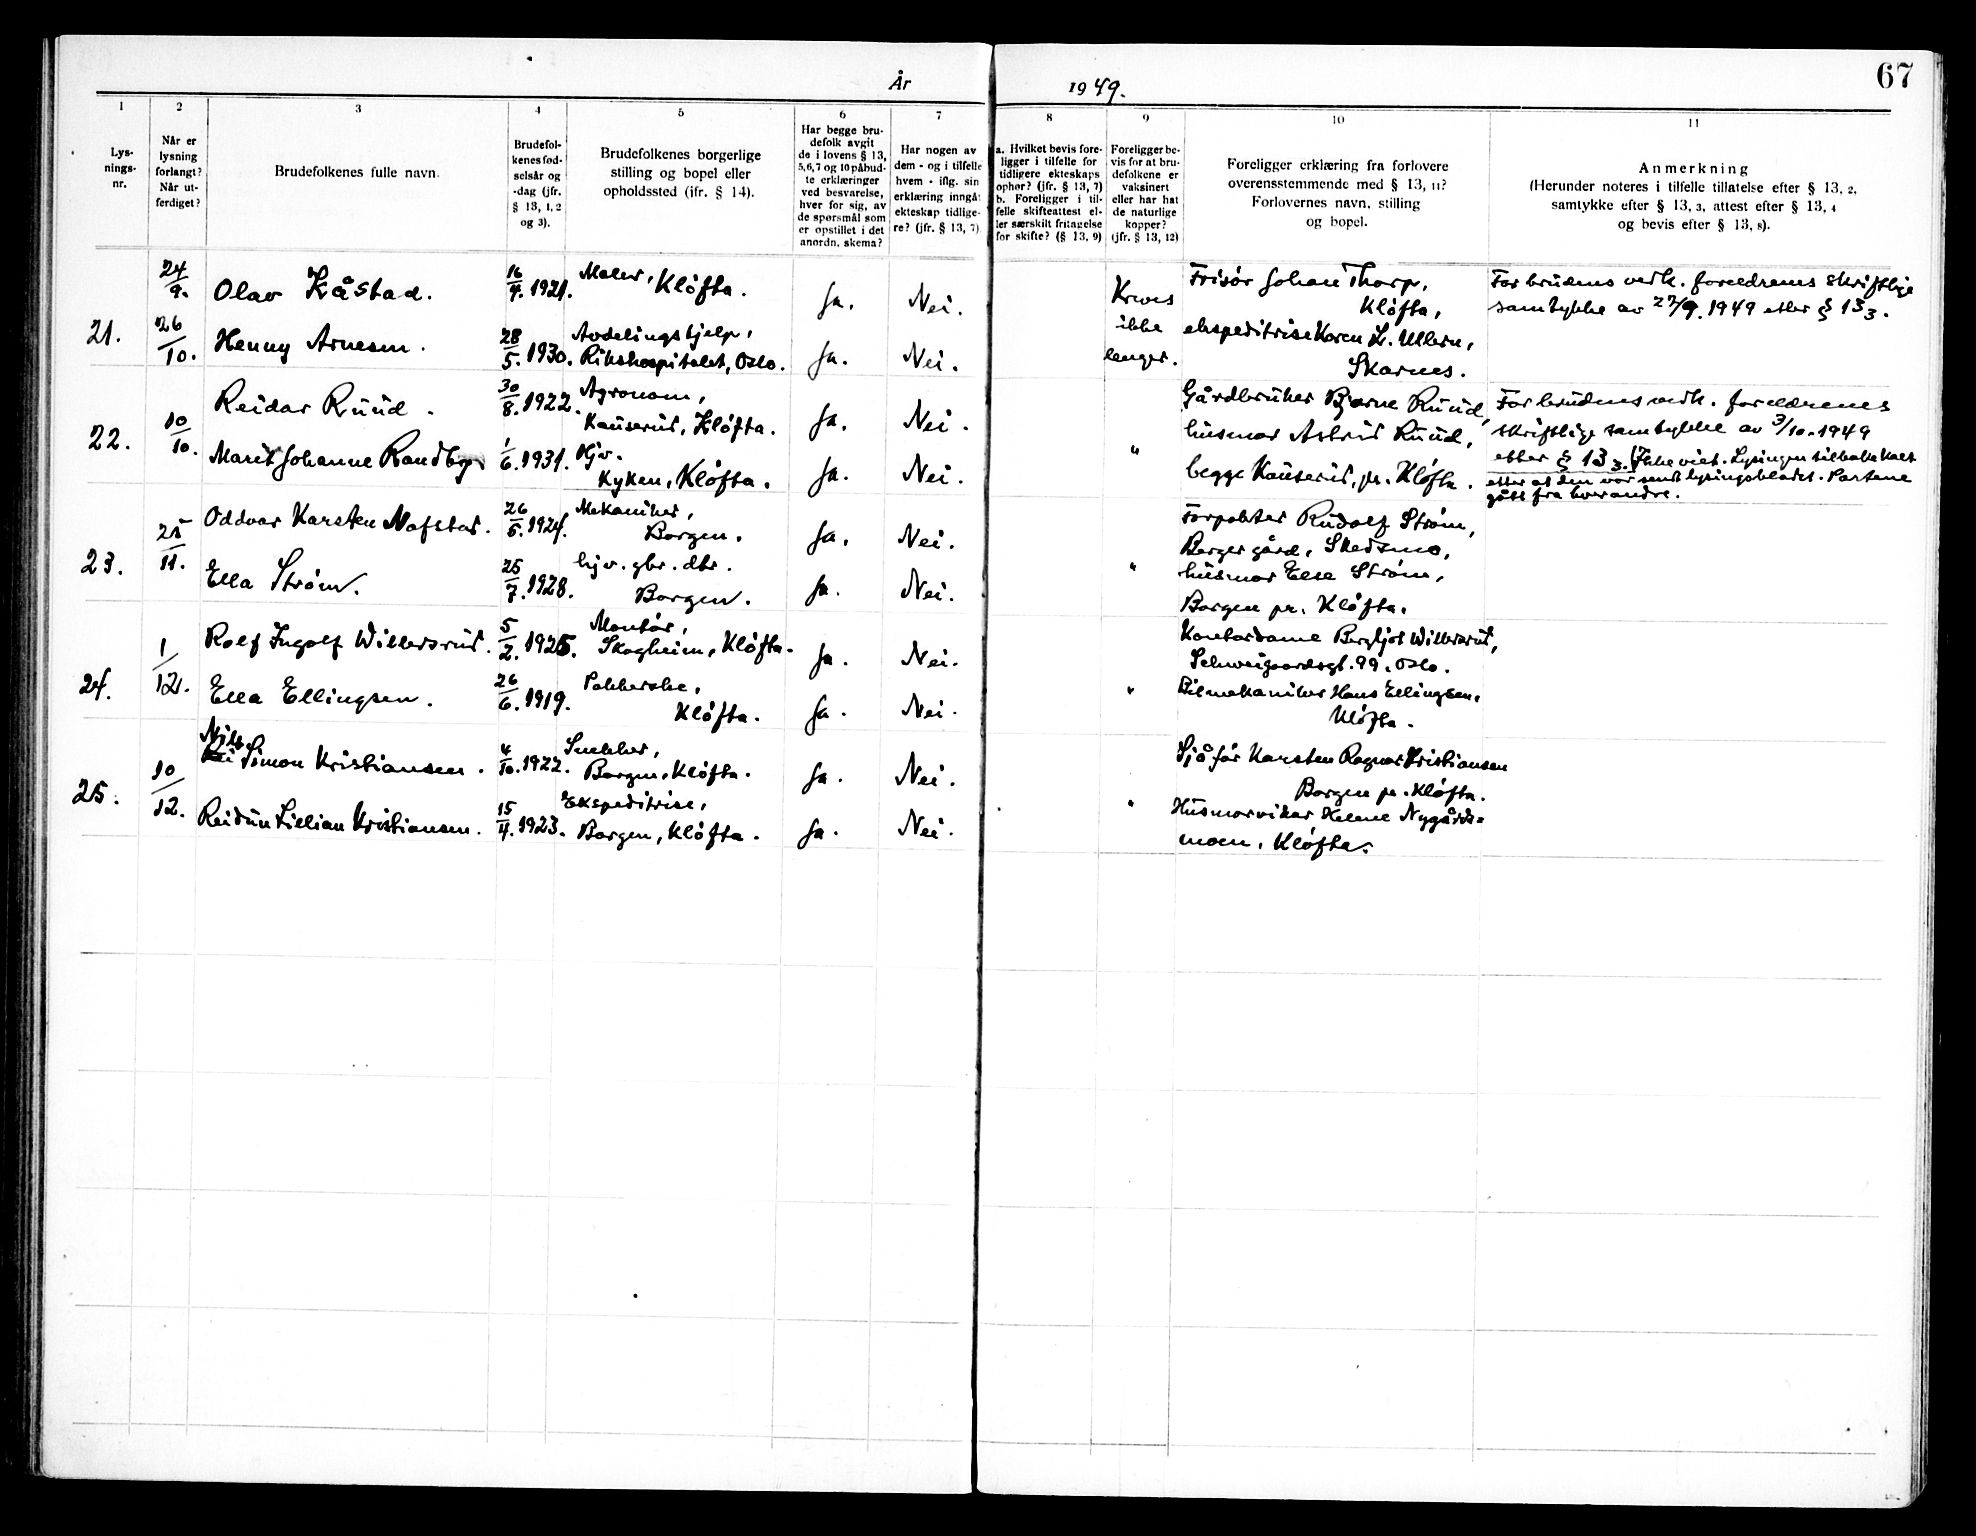 67
År 1949.
1 2 3 4 5 6 7 8 9 10 11
Lys-
nings-
nr.
Når er
lysning
forlangt?
Når ut-
ferdiget?
Brudefolkenes fulle navn.
Brudefol-
kenes fød-
selsår og
-dag (jfr.
§ 13, 1, 2
og 3).
Brudefolkenes borgerlige
stilling og bopel eller
opholdssted (jfr. § 14).
Har begge bru-
defolk avgit
de i lovens § 13,
5,6,7 og 10 påbud-
te erklæringer
ved besvarelse,
hver for sig, av
de spørsmål som
er opstillet i det
anordn. skema?
Har nogen av
dem - og i tilfelle
hvem - iflg. sin
erklæring inngåt
ekteskap tidlige-
re? (jfr. § 13, 7)
a. Hvilket bevis fore-
ligger i tilfelle for
tidligere ekteskaps
ophør? (jfr. § 13, 7)
b. Foreligger i til-
felle skifteattest el-
ler særskilt fritagelse
for skifte? (§ 13, 9)
Foreligger be-
vis for at bru-
defolkene er
vaksinert
eller har hat
de naturlige
kopper?
(jfr. § 13, 12)
Foreligger erklæring fra forlovere
overensstemmende med § 13, 11?
Forlovernes navn, stilling
og bopel.
Anmerkning
(Herunder noteres i tilfelle tillatelse efter § 13, 2,
samtykke efter § 13, 3, attest efter § 13, 4
og bevis efter § 13, 8).
21.
24/9.
26/10.
Olav Kåstad.
16/9. 1921.
Maler, Kløfta.
Ja. Nei.
Henny Arnesen.
28/5. 1930.
Avdelingshjelp,
Rikshospitalet, Oslo.
Ja. Nei.
Kreves
ikke
lenger.
Frisør Johan Thorp,
Kløfta,
ekspeditrise Karen L. Ullern,
Skarnes.
For brudens vedk. foreldrenes skriftlige
samtykke av 27/9. 1949 etter § 13 3.
22.
10/10.
Reidar Ruud.
30/8. 1922.
Agronom,
Kauserud, Kløfta.
Ja. Nei.
Marit Johanne Randby
1/6. 1931.
Hjv.
Kyken, Kløfta.
Ja. Nei.
"
Gårdbruker Bjarne Ruud,
husmor Astrid Ruud,
begge Kauserud, pr. Kløfta.
For brudens vedk. foreldrenes
skriftlige samtykke av 3/10. 1949
etter § 13 3. Ikke viet. Lysingen tilbakekalt
etter at den var sendt lysingsbladet. Partene
gått fra hverandre.
23.
25/11.
Oddvar Karsten Nafstad.
26/5. 1924.
Mekaniker,
Borgen.
Ja. Nei.
Ella Strøm.
25/7. 1928.
hjv. gbr. dtr.
Borgen.
Ja. Nei.
"
Forpakter Rudolf Strøm,
Berger gård, Skedsmo,
husmor Else Strøm,
Borgen pr. Kløfta.
24.
1/12.
Rolf Ingolf Willersrud.
5/2. 1925.
Montør,
Skogheim, Kløfta.
Ja. Nei.
Ella Ellingsen.
26/6. 1919.
Pakkerske,
Kløfta.
Ja. Nei.
"
Kontordame Bergljot Willersrud,
Schweigaardsgt. 99. Oslo.
Bilmekaniker Hans Ellingsen,
Kløfta.
25.
10/12.
Nils
Simon Kristiansen.
4/10. 1922.
Snekker,
Borgen, Kløfta.
Ja. Nei.
Reidun Lillian Kristiansen.
15/4. 1923.
Ekspeditrise,
Borgen, Kløfta.
Ja. Nei.
"
Sjåfør Karsten Ragnar Kristiansen
Borgen pr. Kløfta.
Husmorvikar Helene Nygårds-
moen, Kløfta.